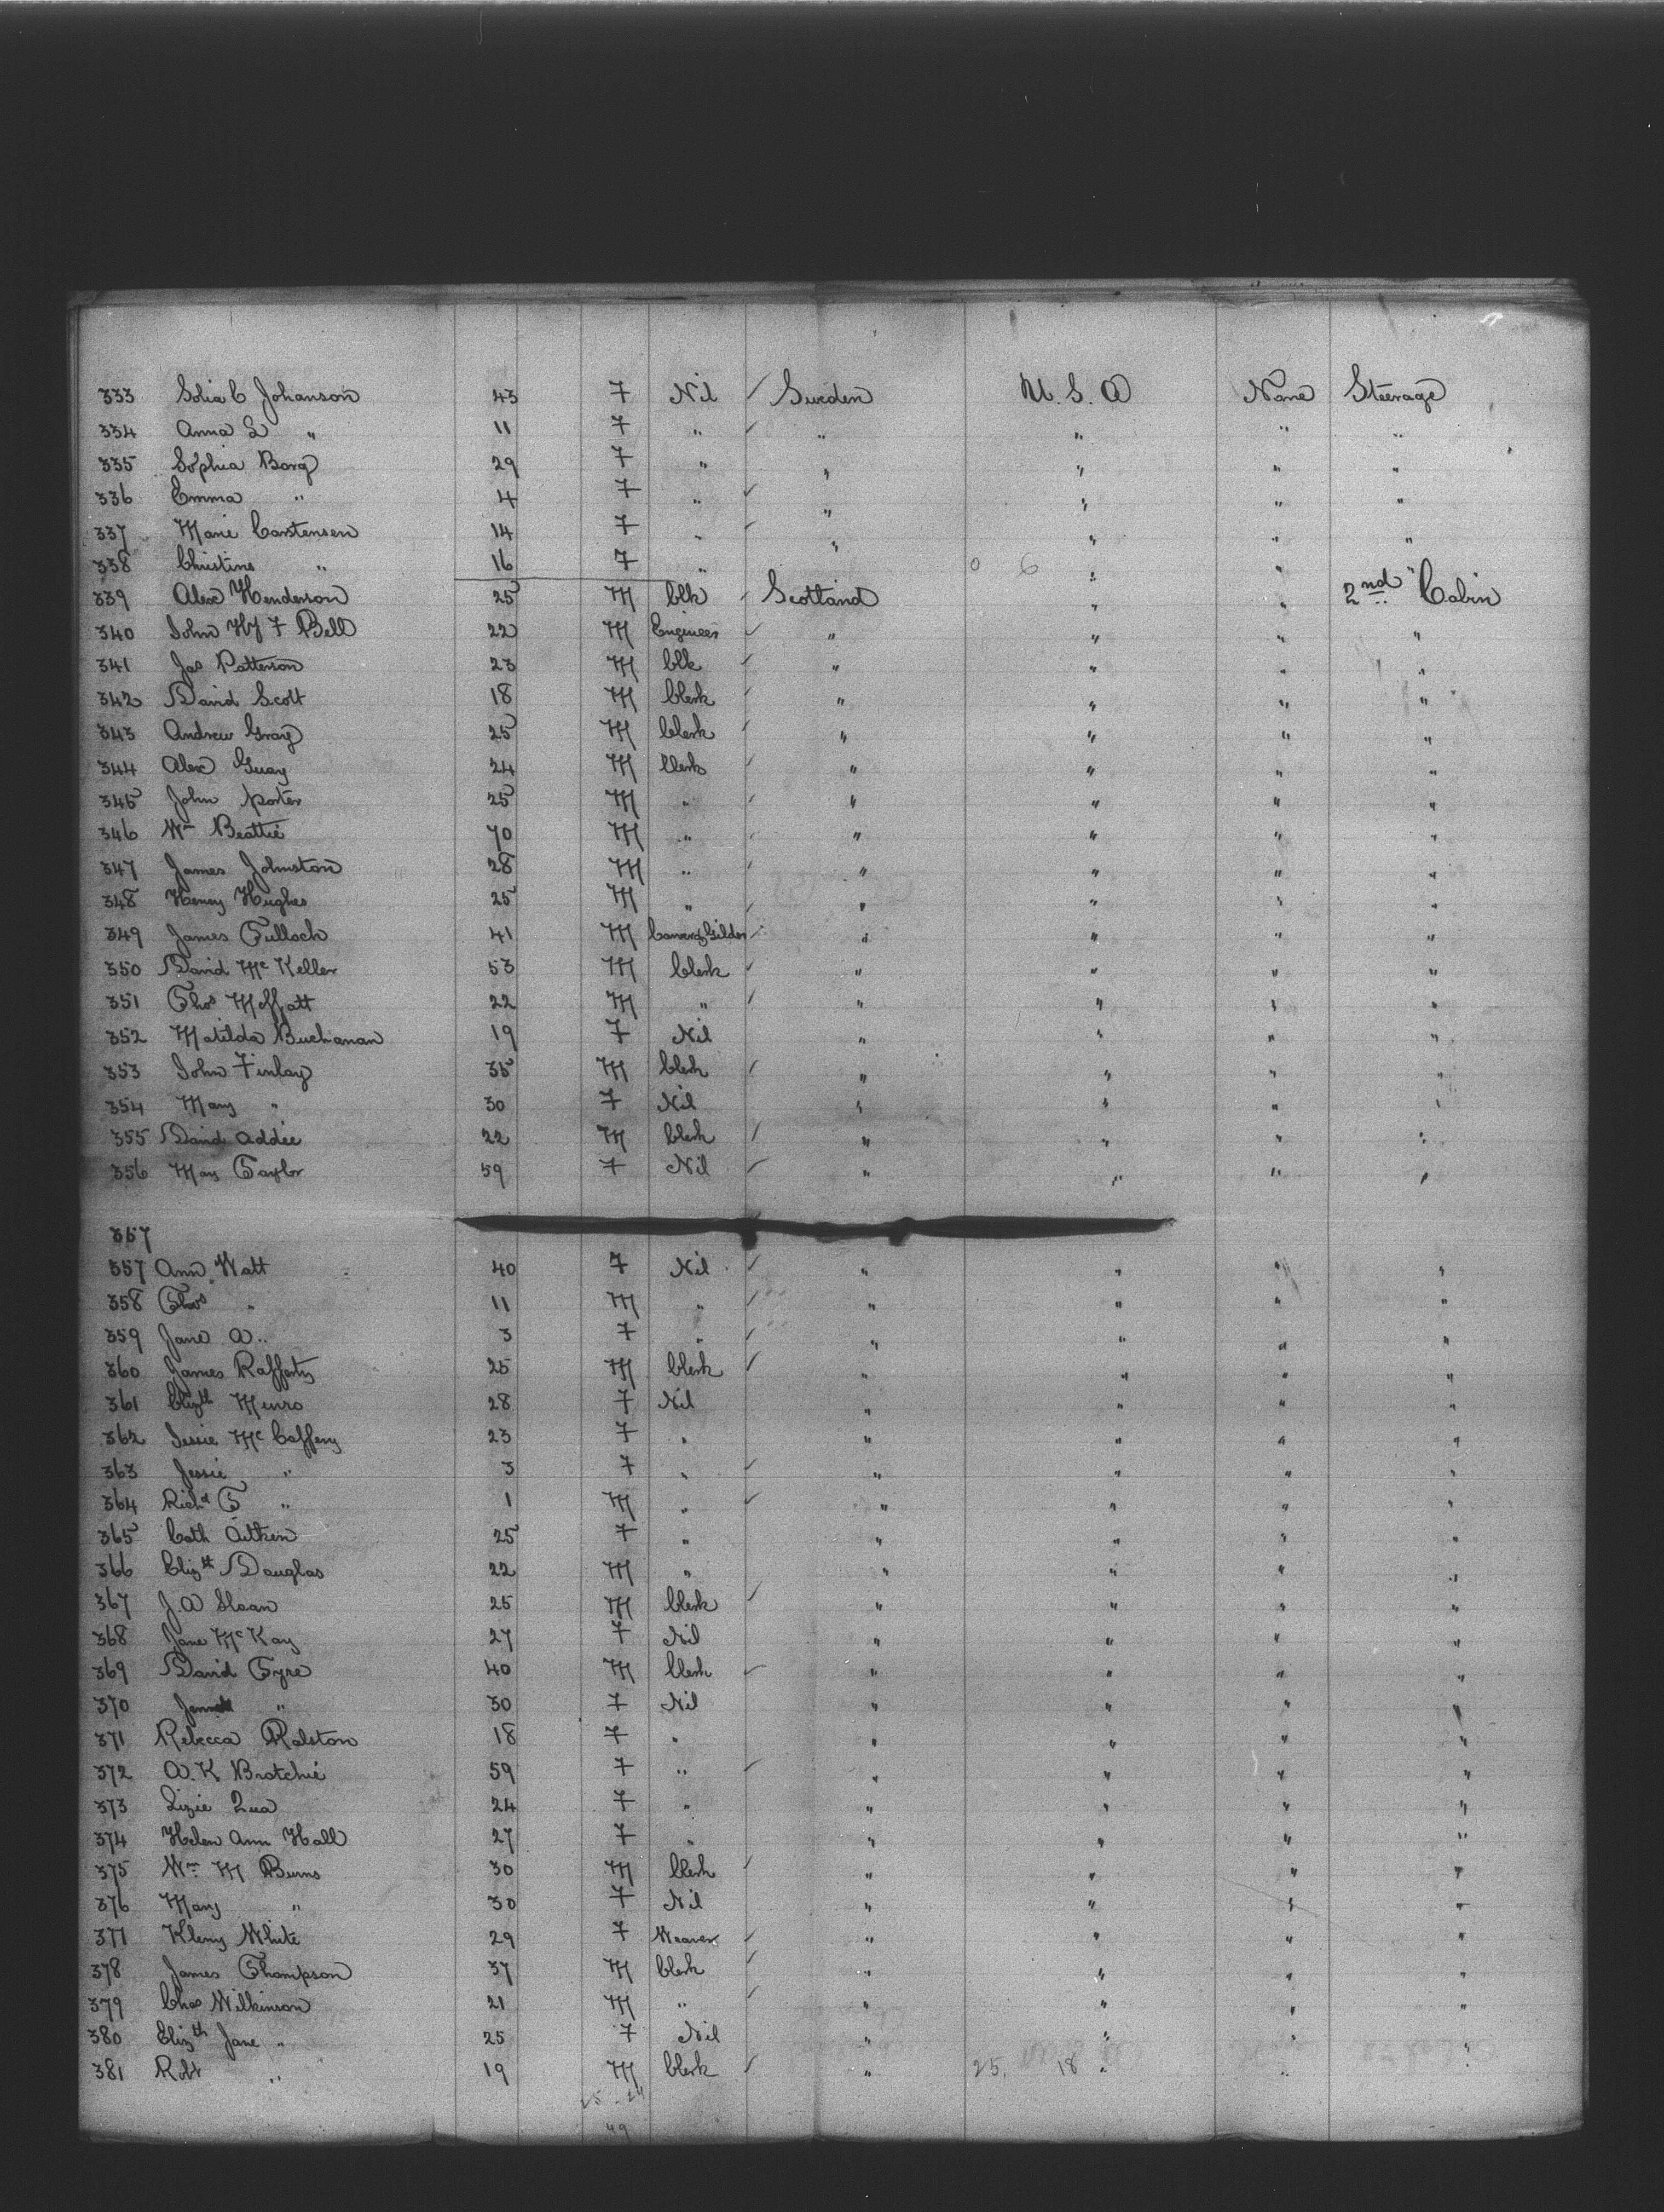 333 Sofia C Johanson 43 F Nil ✓ Sweden U.S.A None Steerage
334 Anna L " 11 F " ✓ " " " "
335 Sophia Borg 29 F " " " " "
336 Emma " 4 F " ✓ " " " "
337 Marie Carstensen 14 F " ✓ " " " "
338 Christine " 16 F " 0 6 " " "
339 Alex Henderson 25 M Clk Scotland " " 2nd Cabin
340 John Hy F Bell 22 M Engineer ✓ " " " "
341 Jas Patterson 23 M Clk ✓ " " " "
342 David Scott 18 M Clerk ✓ " " " "
343 Andrew Gray 25 M Clerk ✓ " " " "
344 Alex Guay 24 M Clerk " " " "
345 John Porter 25 M " ✓ " " " "
346 Wm Beattie 70 M " ✓ " " " "
347 James Johnston 28 M " ✓ " " " "
348 Henry Hughes 25 M " ✓ " " " "
349 James Tulloch 41 M Carver & Gilder ✓ " " " "
350 David Mc Keller 53 M Clerk ✓ " " " "
351 Thos Moffatt 22 M " ✓ " " " "
352 Matilda Buchanan 19 F Nil " " " "
353 John Finlay 35 M Clerk ✓ " " " "
354 Mary " 30 F Nil " " " "
355 David Addie 22 M Clerk ✓ " " " "
356 May Taylor 59 F Nil ✓ " " " "
357
357 Ann Watt 40 F Nil ✓ " " " "
358 Thos " 11 M " ✓ " " " "
359 Jane A " 3 F " ✓ " " " "
360 James Rafferty 25 M Clerk ✓ " " " "
361 Elizth Munro 28 F Nil " " " "
362 Jessie Mc Caffery 23 F " " " " "
363 Jessie " 3 F " ✓ " " " "
364 Richd T " 1 M " ✓ " " " "
365 Cath Aitken 25 F " " " " "
366 Elizth Douglas 22 M " " " " "
367 J.A Sloan 25 M Clerk ✓ " " " "
368 Jane Mc Kay 27 F Nil " " " "
369 David Tyre 40 M Clerk ✓ " " " "
370 " 30 F Nil " " " "
371 Rebecca Ralston 18 F " " " " "
372 A.K Brotchie 59 F " ✓ " " " "
373 Lizie Qua 24 F " " " " "
374 Helen Ann Hall 27 F " " " " "
375 Wm M Burns 30 M Clerk ✓ " " " "
376 Mary " 30 F Nil " " " "
377 White 29 F Weaver ✓ " " " "
378 James Thompson 37 M Clerk ✓ " " " "
379 Chas Wilkinson 21 M " ✓ " " " "
380 Elizth Jane " 25 F Nil " " " "
381 Robt " 19 M Clerk ✓ " 25, 18 " " "
25 - 24
49